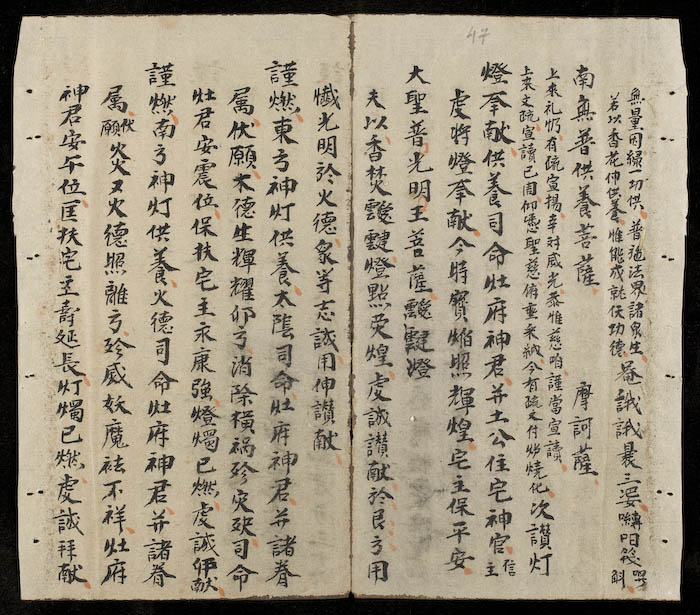 47
無量因緣一切供 普施法界諸眾生
若以香花伸供養 惟能成就佉功德
南無普供養菩薩 摩訶薩
上來礼忏有疏宣揚 幸对威光恭惟慈 謹當宣讀
上來文疏宣讀已周仰憑聖慈俯垂采納今有疏文付炉燒化 次讃灯
燈奉献供養司命灶府神君并土公住宅神官 信主
虔将燈奉献今将寳焰照輝煌宅主保平安
大聖普光明王菩薩靉靆燈
夫以香焚靉靆燈點熒煌虔誠讃献於良方用
懺光明於火德眾等志誠用伸讃献
謹燃東方神灯供養太陰司命灶府神君并諸眷
属伏願木德生輝耀卯方消除橫祸殄灾殃司命
灶君安震位保扶宅主永康強燈燭已燃虔誠伊献
謹燃南方神灯供養火德司命灶府神君并諸眷
属伏願火德照離方殄滅妖魔袪不祥灶府
神君安午位匡扶宅主壽延長灯燭已燃虔誠拜献